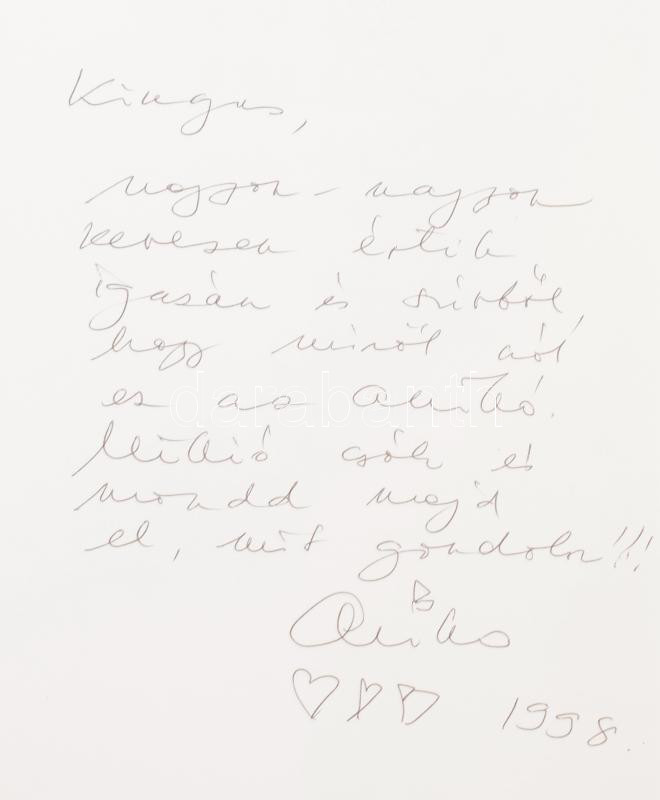 Kingus,
nagyon - nagyon
kevesen értik
igazán és szívből,
hogy miről szól
ez az alkotó.
Millió csók és
mondd majd
el, mit gondolsz!!!
Anikó
1998.
darabanth